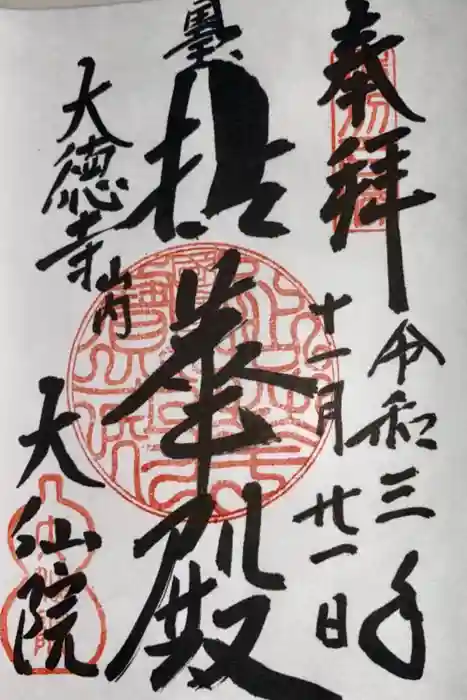 奉拝
令和三年
十一月
廿一日
墨
拈華殿
大徳寺
山内
大仙院